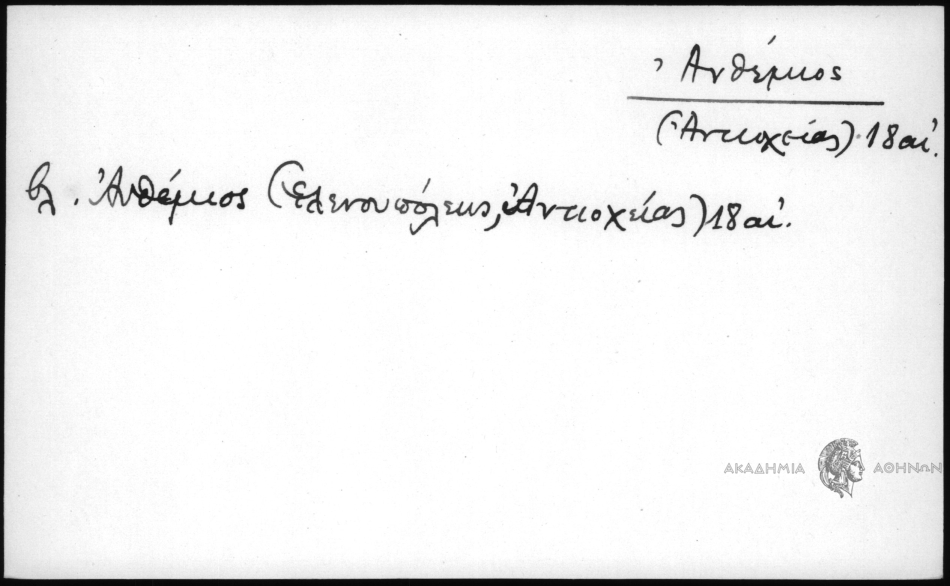 Ἀνθέμιος
(Ἀντιοχείας) 18 αἰ.
βλ. Ἀνθέμιος (Ἑλενουπόλεως, Ἀντιοχείας) 18 αἰ.
ΑΚΑΔΗΜΙΑ ΑΘΗΝΩΝ